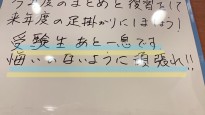 今年度のまとめと復習をして
来年度の足掛かりにしましょう!
受験生あと一息です。
悔いのないように頑張れ!!